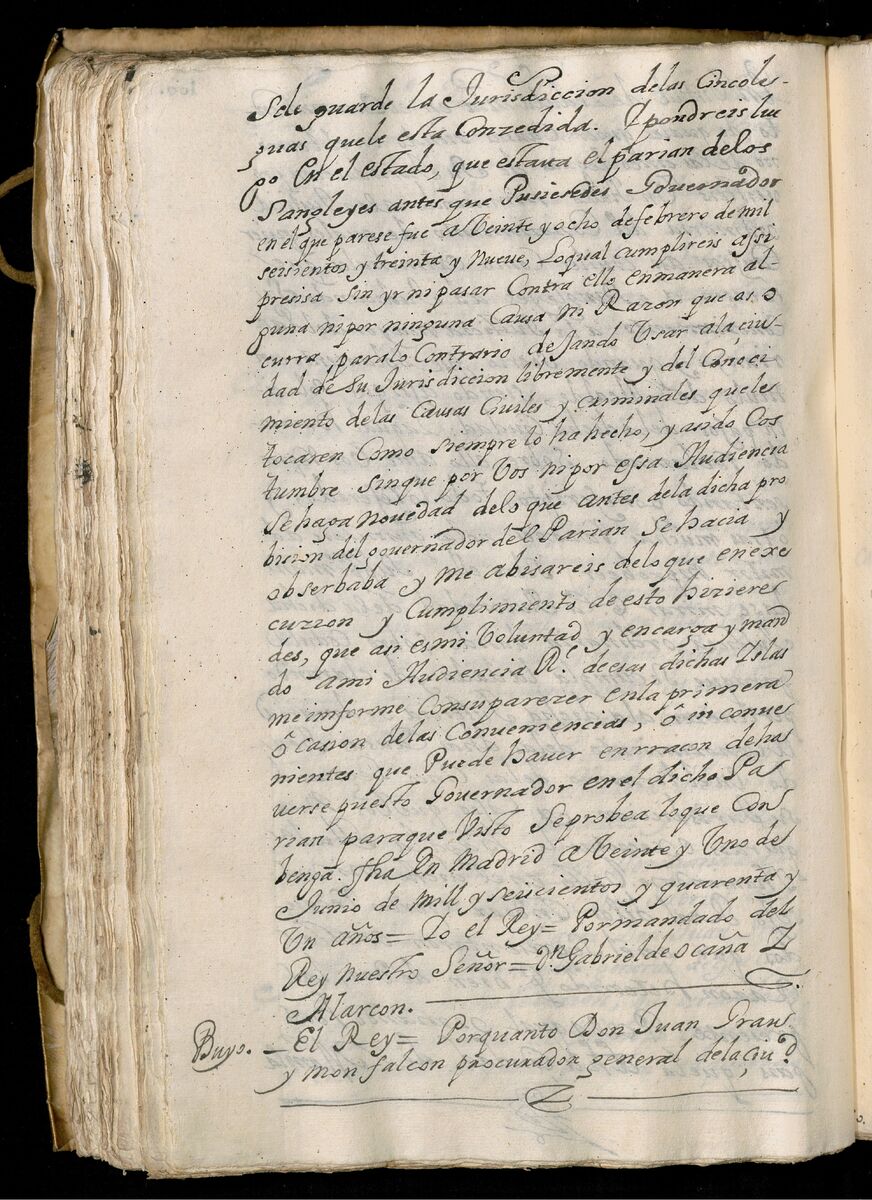 Sele guarde la Jurisdiccion delas Cincole-
guas quele esta Conzedida. Y pondreis lue
go En el estado, que estava el parian delos
Sangleyes antes que Pusiesedes Governador
en el que parese fue a Veinte y ocho defebrero de mil
seisientos y treinta y Nueve, Loqual cumplireis assi
presisa sin yr ni pasar Contra ello enmanera al-
guna ni por ninguna Causa ni Razon que as o
curra paralo Contrario dejando Usar ala çiu-
dad de su Jurisdiccion libremente y del Conoci
miento delas Causas Civiles y criminales quele
tocaren Como siempre lo ha hecho, y asido Cos
tumbre sinque por Vos nipor essa Audiencia
Sehaga novedad delo que antes dela dicha pro
bision del governador del Parian Se hacia y
obserbaba y me abisareis delo que en exe
cuzion y Cumplimiento de esto hiziere
des, que asi es mi Voluntad y encarga y man
do ami Audiencia Rl. de esas dichas Yslas
me imforme Consuparezer enla primera
ôcasion delas Conveniencias, ô in conve
nientes que Puede haver enrracon deha
verse puesto Governador en el dicho Pa
rian paraque Visto Seprobea loque Con
benga. fha En Madrid a Veinte y Uno de
Junio de mill y seiscientos y quarenta y
Un años= Yo el Rey= Pormandado del
Rey Nuestro Señor= Dn. Gabriel de Ocaña Y
Alarcon.
Buyo. - El Rey= Porquanto Don Juan Grau
y mon falcon procurador general dela çiud.